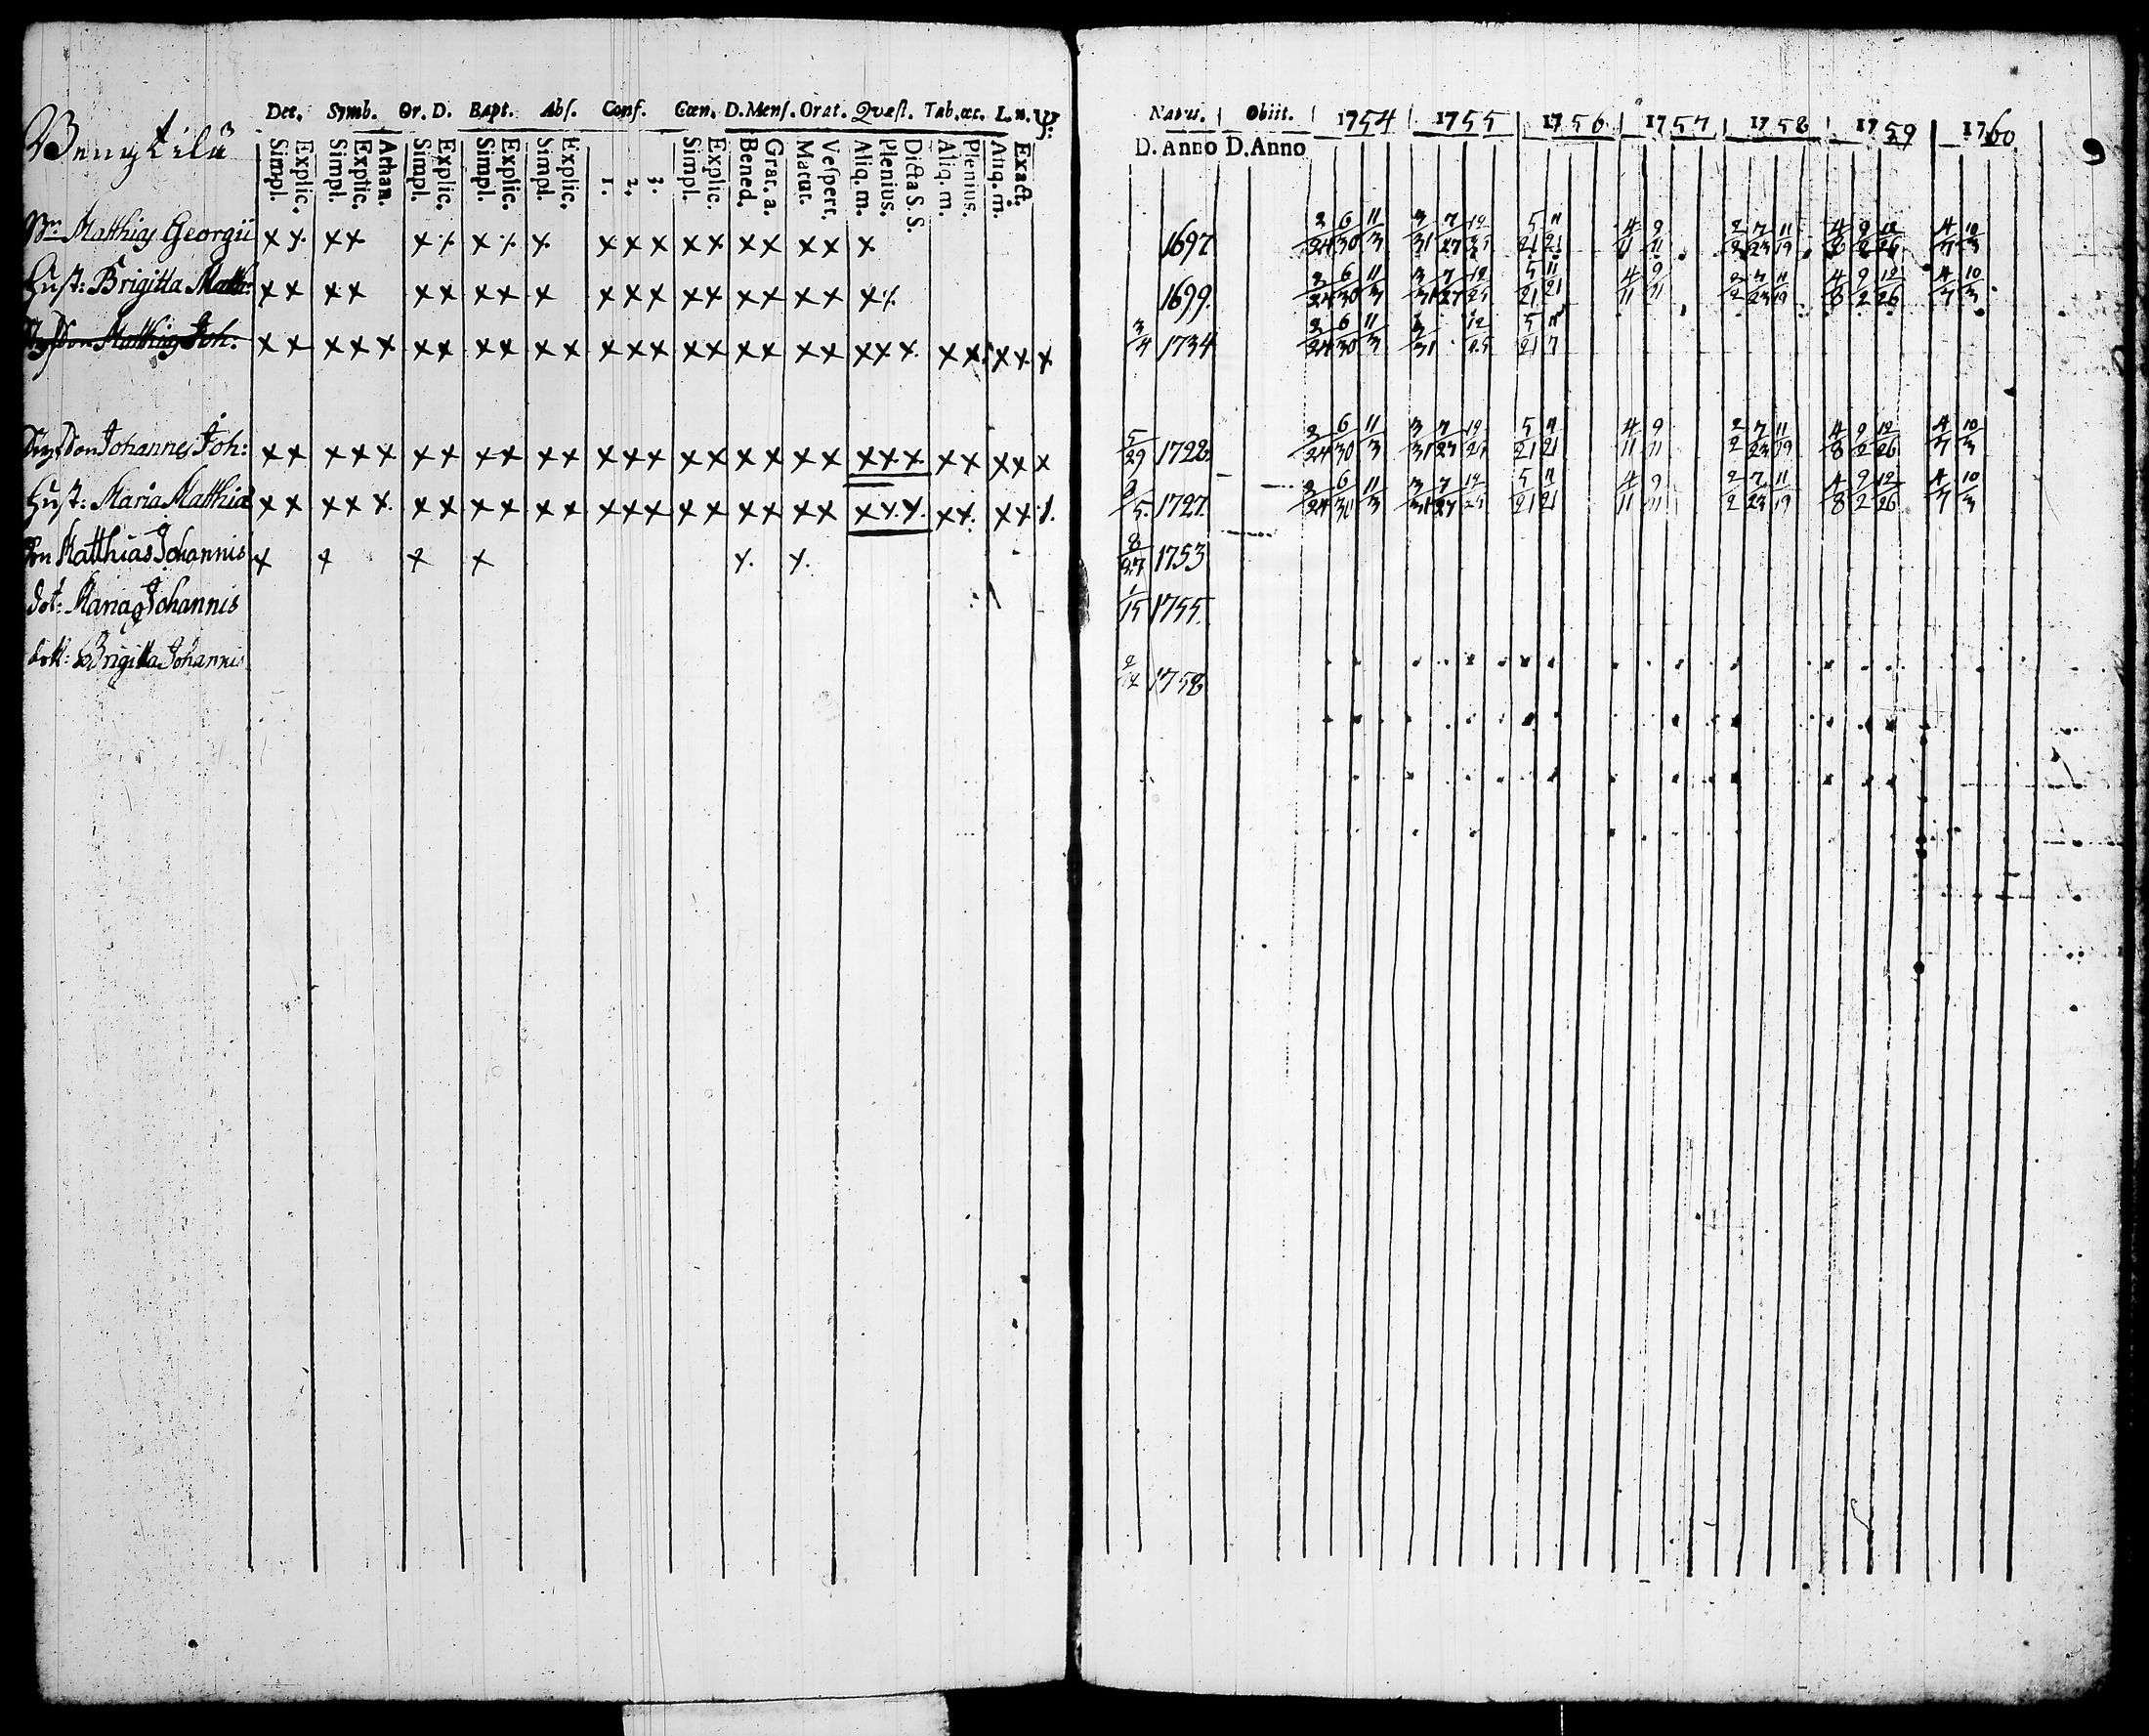 Bengtilä
Dec. Symb. Or. D. Bapt. Abſ. Conf. Cœn. D. Menſ. Orat. Qvæſt. Tab. œc. L. n. Ψ.
Simpl. Explic. Simpl. Explic. Athan. Simpl. Explic. Simpl. Explic. Simpl. Explic. 1. 2. 3. Simpl. Explic. Bened. Grat. a. Matut. Veſpert. Aliq. m. Plenius. Dicta S. S. Aliq. m. Plenius. Aliq. m. Exact.
Natus. Obiit. 1754 1755 1756 1757 1758 1759 1760 9
D. Anno D. Anno
Matthias Georgii x x x x x x x x x x x x x x x x x x x 1697 2/24 6/30 11/3 3/31 7/27 12/25 5/21 11/21 4/11 9/11 2/2 7/23 11/19 4/8 9/2 12/26 4/7 10/3
Hust: Brigitta Math: x x x x x x x x x x x x x x x x x x x x 1699 2/24 6/30 11/3 3/31 7/27 12/25 5/21 11/21 4/11 9/11 2/2 7/23 11/19 4/8 9/2 12/26 4/7 10/3
Mathias Joh: x x x x x x x x x x x x x x x x x x x x x x x x x x x x 3/4 1734 2/24 6/30 11/3 3/31 12/25 5/21 11/7
Johannes Joh: x x x x x x x x x x x x x x x x x x x x x x x x x x x x 5/29 1728 2/24 6/30 11/3 3/31 7/27 12/25 5/21 11/21 4/11 9/11 2/2 7/23 11/19 4/8 9/2 12/26 4/7 10/3
Hust: Maria Mathiæ x x x x x x x x x x x x x x x x x x x x x x x x x x x 1727 2/24 6/30 11/3 3/31 7/27 12/25 5/21 11/21 4/11 9/11 2/2 7/23 11/19 4/8 9/2 12/26 4/7 10/3
Son Matthias Johannis x x x x x x 8/27 1753
dot: Maria Johannis 1/15 1755
dott: Brigitta Johannis 1758